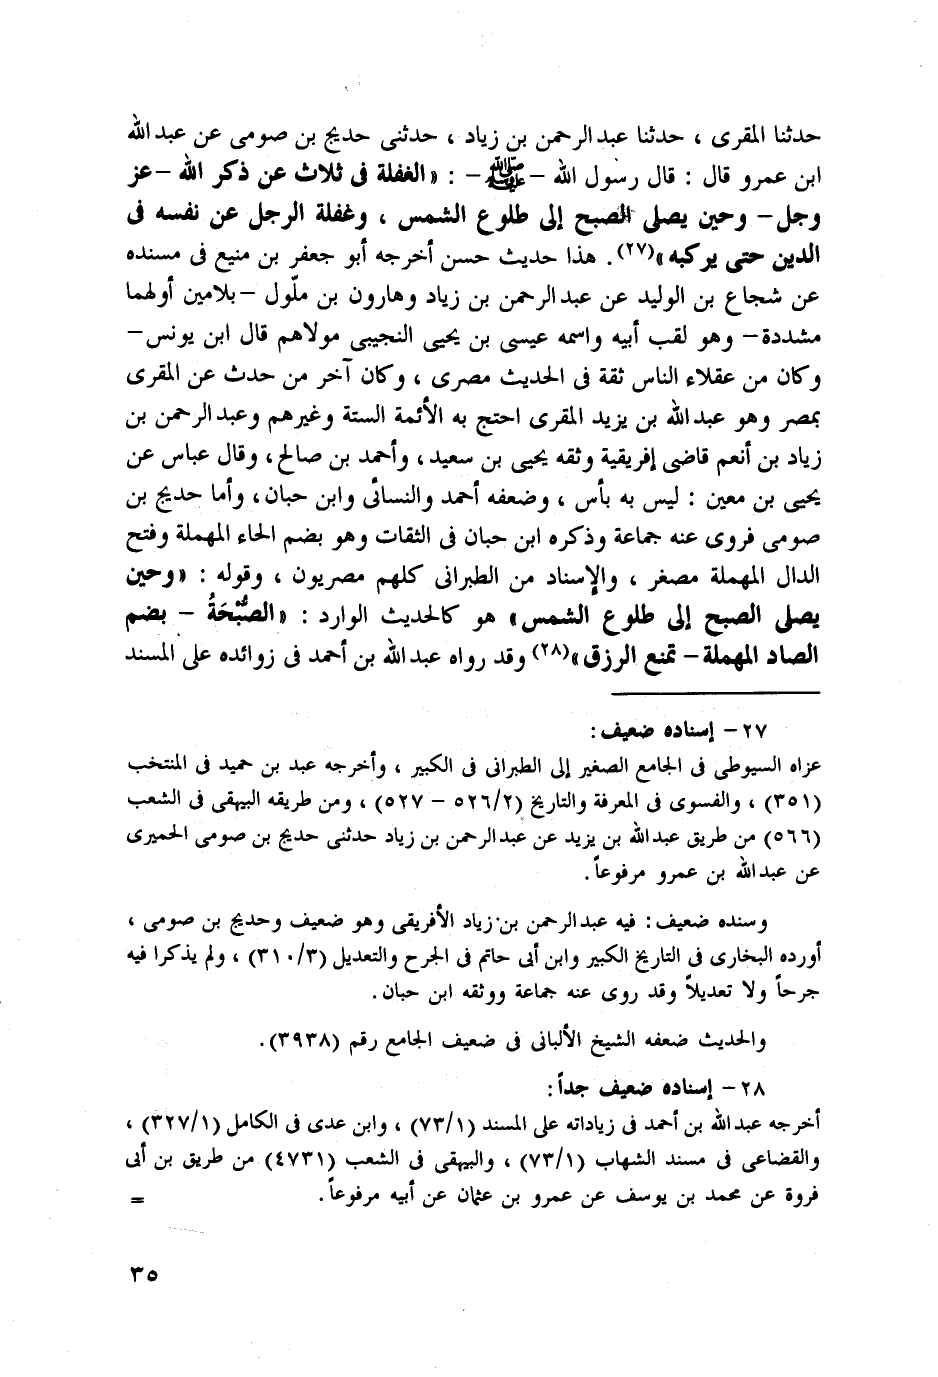 حدثنا المقرى ، حدثنا عبد الرحمن بن زياد ، حدثنى حديج بن صومى عن عبد الله
ابن عمرو قال : قال رسول الله -ﷺ- : «الغفلة فى ثلاث عن ذكر الله -عز
وجل- وحين يصلى الصبح إلى طلوع الشمس ، وغفلة الرجل عن نفسه فى
الدين حتى يركبه»(٢٧). هذا حديث حسن أخرجه أبو جعفر بن منيع فى مسنده
عن شجاع بن الوليد عن عبد الرحمن بن زياد وهارون بن ملّول -بلامين أولهما
مشددة- وهو لقب أبيه واسمه عيسى بن يحيى النجيبى مولاهم قال ابن يونس-
وكان من عقلاء الناس ثقة فى الحديث مصرى ، وكان آخر من حدث عن المقرى
بمصر وهو عبد الله بن يزيد المقرى احتج به الأئمة الستة وغيرهم وعبد الرحمن بن
زياد بن أنعم قاضى إفريقية وثقه يحيى بن سعيد ، وأحمد بن صالح ، وقال عباس عن
يحيى بن معين : ليس به بأس ، وضعفه أحمد والنسائى وابن حبان ، وأما حديج بن
صومى فروى عنه جماعة وذكره ابن حبان فى الثقات وهو بضم الحاء المهملة وفتح
الدال المهملة مصغر ، والإسناد من الطبرانى كلهم مصريون ، وقوله : «وحين
يصلى الصبح إلى طلوع الشمس» هو كالحديث الوارد : «الصُّبْحَةُ - بضم
الصاد المهملة- تمنع الرزق»(٢٨) وقد رواه عبد الله بن أحمد فى زوائده على المسند
٢٧- إسناده ضعيف :
عزاه السيوطى فى الجامع الصغير إلى الطبرانى فى الكبير ، وأخرجه عبد بن حميد فى المنتخب
(٣٥١) ، والفسوى فى المعرفة والتاريخ (٥٢٦/٢ - ٥٢٧) ، ومن طريقه البيهقى فى الشعب
(٥٦٦) من طريق عبد الله بن يزيد عن عبد الرحمن بن زياد حدثنى حديج بن صومى الحميرى
عن عبد الله بن عمرو مرفوعاً .
وسنده ضعيف : فيه عبد الرحمن بن زياد الأفريقى وهو ضعيف وحديج بن صومى ،
أورده البخارى فى التاريخ الكبير وابن أبى حاتم فى الجرح والتعديل (٣١٠/٣) ، ولم يذكرا فيه
جرحاً ولا تعديلاً وقد روى عنه جماعة ووثقه ابن حبان .
والحديث ضعفه الشيخ الألبانى فى ضعيف الجامع رقم (٣٩٣٨) .
٢٨- إسناده ضعيف جداً :
أخرجه عبد الله بن أحمد فى زياداته على المسند (٧٣/١) ، وابن عدى فى الكامل (٣٢٧/١) ،
والقضاعى فى مسند الشهاب (٧٣/١) ، والبيهقى فى الشعب (٤٧٣١) من طريق بن أبى
فروة عن محمد بن يوسف عن عمرو بن عثمان عن أبيه مرفوعاً . =
٣٥